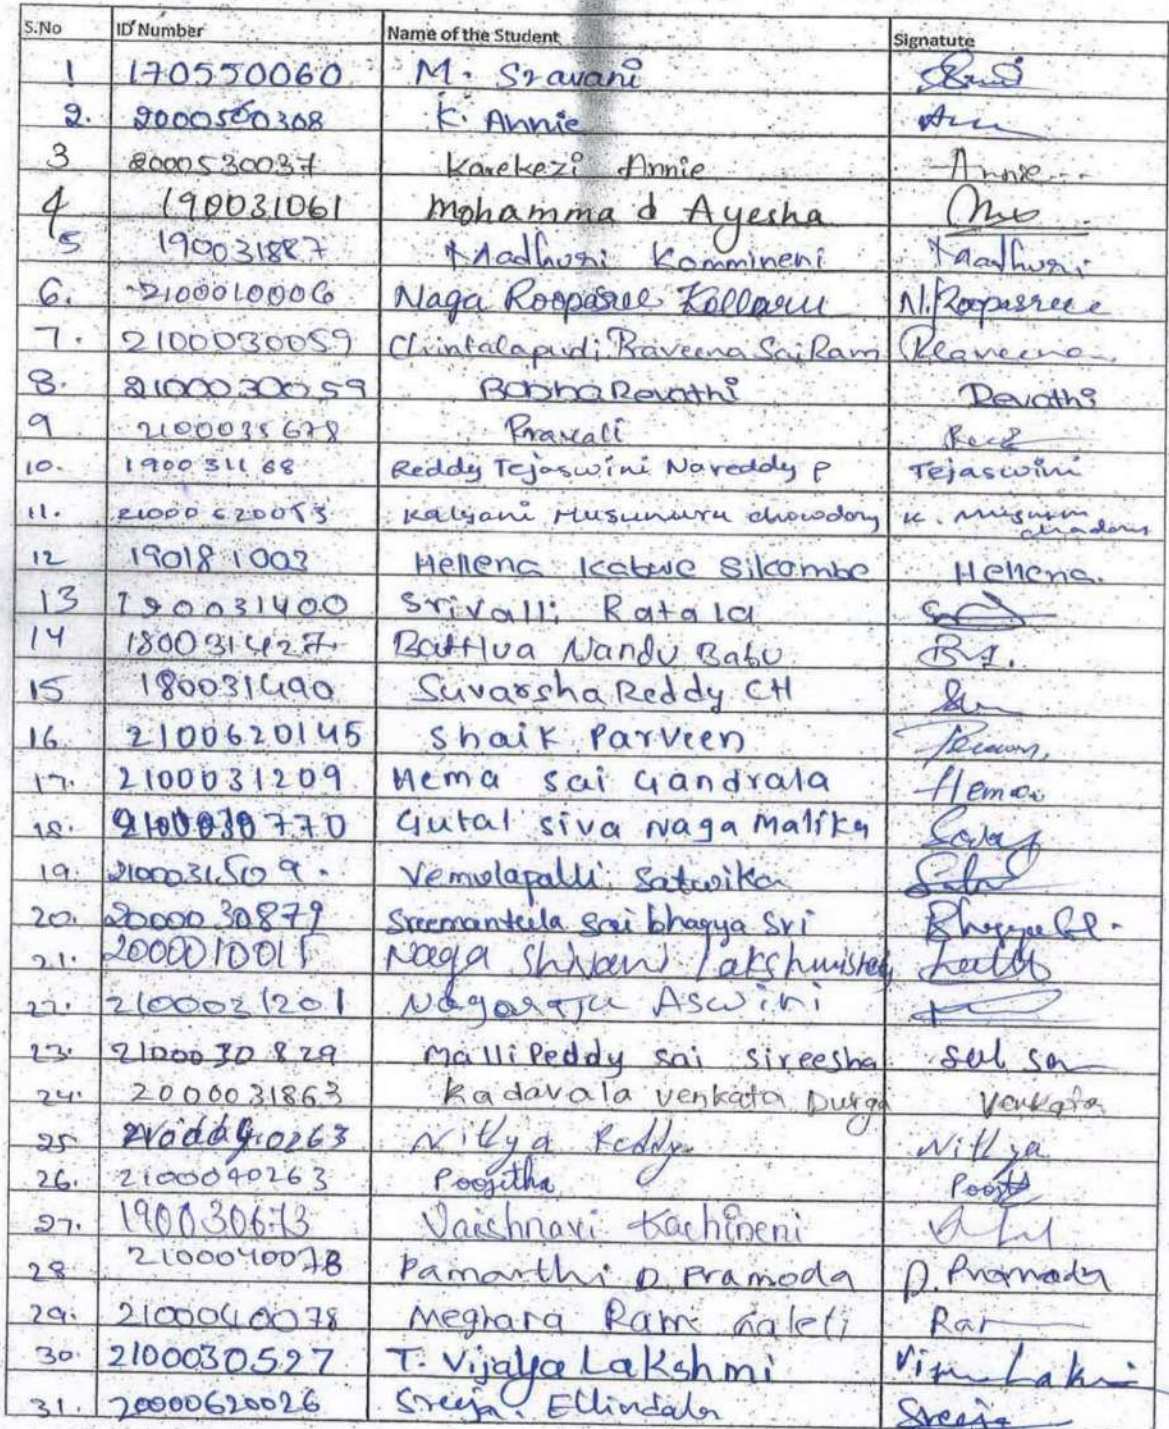 S.No ID Number Name of the Student Signatute
1 170550060 M. Sravani
2. 2000500308 K. Annie Ann
3 2000530037 Karekezi Annie Annie
4 190031061 Mohammad Ayesha
5 190031887 Maadhuri Kommineni Maadhuri
6. 2100010006 Naga Roopasree Kollaru N. Roopasree
7. 2100030059 Chintalapudi Praveena Sai Ram Praveena
8. 2100030059 Bobba Revathi Revathi
9 2100035678 Pravali
10. 190031168 Reddy Tejaswini Nareddy P Tejaswini
11. 21000620053 Kalyani Musunuru chowdory K.
12 190181003 Hellena Katwe Silcombe Hellena.
13 190031400 Srivalli Ratala
14 180031427 Battlua Nandu Babu
15 180031490 Suvarsha Reddy CH
16. 2100620145 Shaik Parveen
17. 2100031209 Hema sai Gandrala Hema
18. 2100030770 Gutal siva Naga Malika
19. 2100031509. Vemulapalli Satwika
20. 2000030879 Sreemanteela sai bhagya Sri
21. 2000010015 Naga Shivani
22. 2100031201 Nagaraju Aswini
23. 2100030829 Malli Peddy sai sireesha
24. 2000031863 Kadavala venkata Durga Venkata
25 0263 Nithya Reddy Nithya
26. 2100040263 Poojitha
27. 190030673 Vaishnavi Kachineni
28 2100040078 Pamarthi D. Pramoda D. Pramoda
29. 2100040078 Meghara Ram Galeti Ram
30. 2100030527 T. Vijaya Lakshmi
31. 20000620026 Sreeja. Ellindala Sreeja